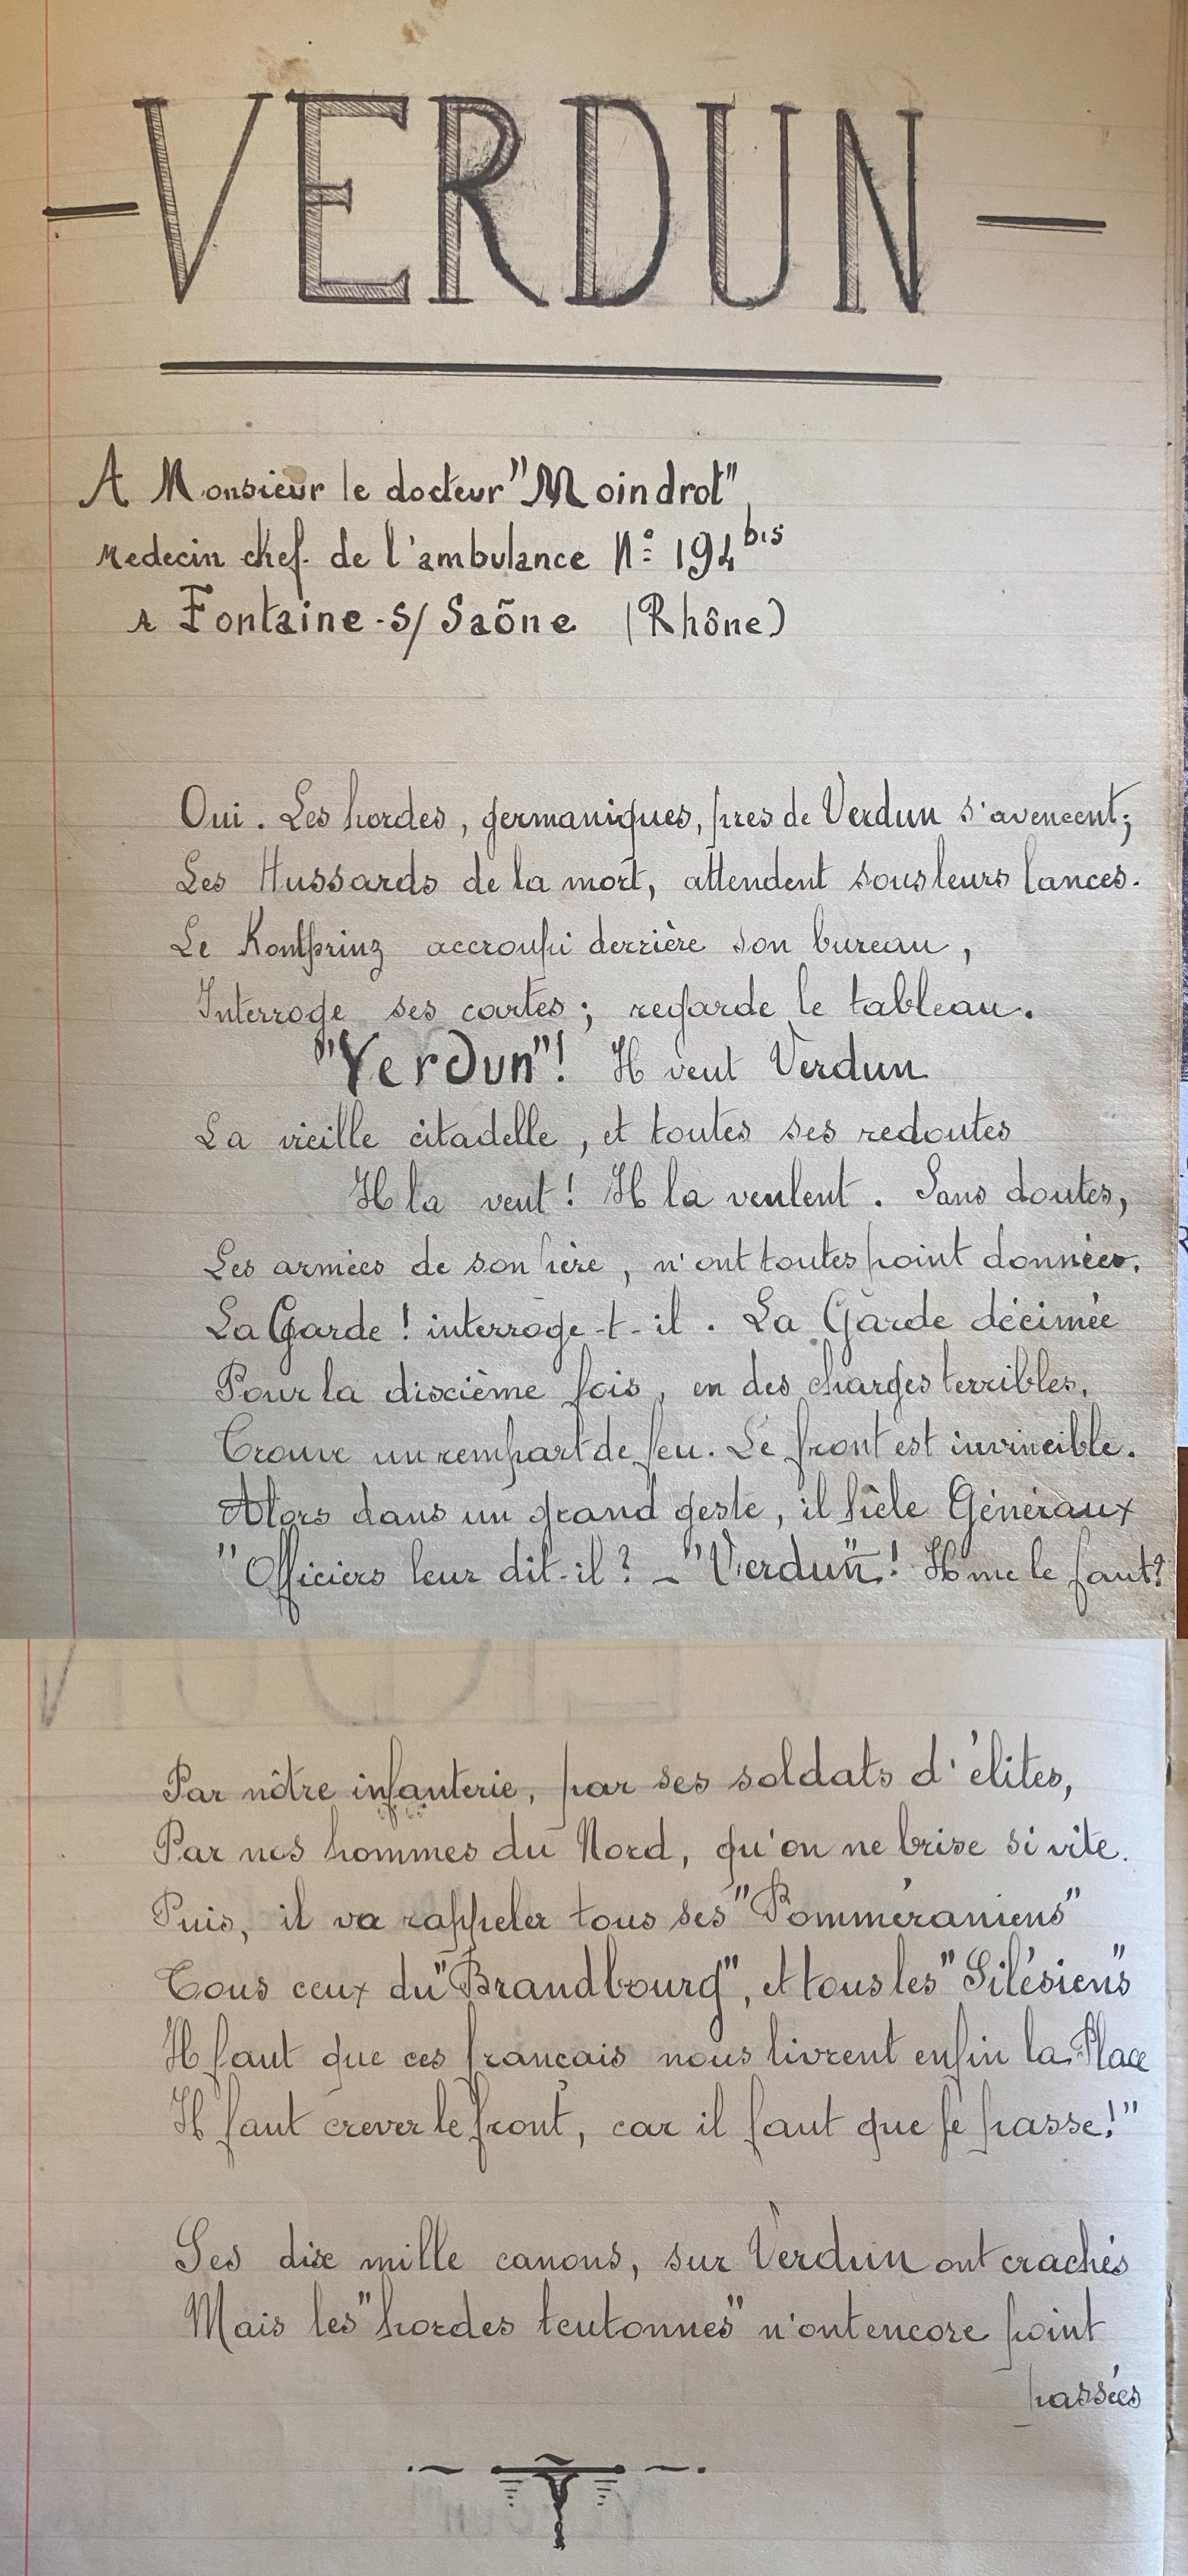 — VERDUN —
A Monsieur le docteur "Moindrot"
Medecin chef. de l'ambulance N° 194 bis
A Fontaine-s/ Saône (Rhône)
Oui. Les hordes, germaniques, pres de Verdun s'avencent;
Les Hussards de la mort, attendent sous leurs lances.
Le Kontprinz accroupi derrière son bureau,
Interroge ses cartes; regarde le tableau.
"Verdun"! Il veut Verdun
La vieille citadelle, et toutes ses redoutes
Il la veut! Il la veulent. Sans doutes,
Les armées de son père, n'ont toutes point données.
La Garde! interroge-t-il. La Garde décimée
Pour la dixcième fois, en des charges terribles,
Trouve un rempart de feu. Le front est invincible.
Alors dans un grand geste, il hèle Généraux
"Officiers leur dit-il? – "Verdun"! Il me le faut?
Par nôtre infanterie, par ses soldats d'élites,
Par nos hommes du Nord, qu'on ne brise si vite.
Puis, il va rappeler tous ses "Pomméraniens"
Tous ceux du "Brandbourg", et tous les "Silésiens"
Il faut que ces francais nous livrent enfin la Place
Il faut crever le front, car il faut que je passe!"
Ses dix mille canons, sur Verdun ont crachés
Mais les "hordes teutonnes" n'ont encore point
passées